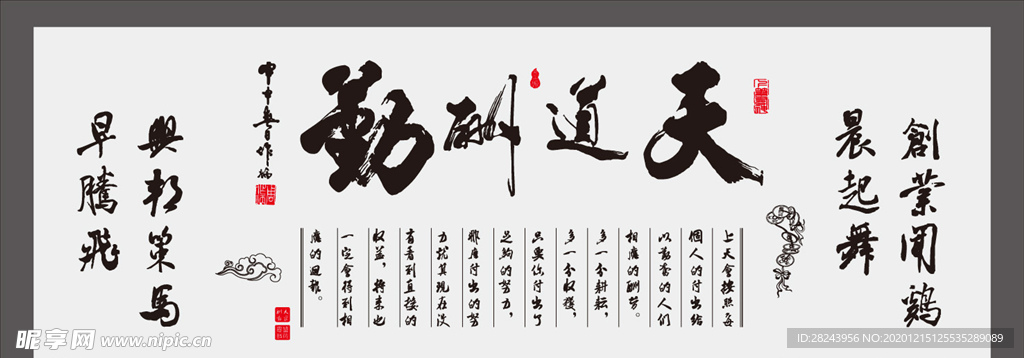 創業聞鷄
晨起舞
天道酬勤
上天會按照每
個人的付出給
以勤奮的人們
相應的酬勞。
多一分耕耘,
多一分收穫,
只要你付出了
足夠的努力,
付出的努
力就算現在沒
有看到直接的
收益,將來也
一定會得到相
應的回報。
興邦策馬
早騰飛
昵享网 www.nipic.cn
ID:28243956 NO:20201215125535289089